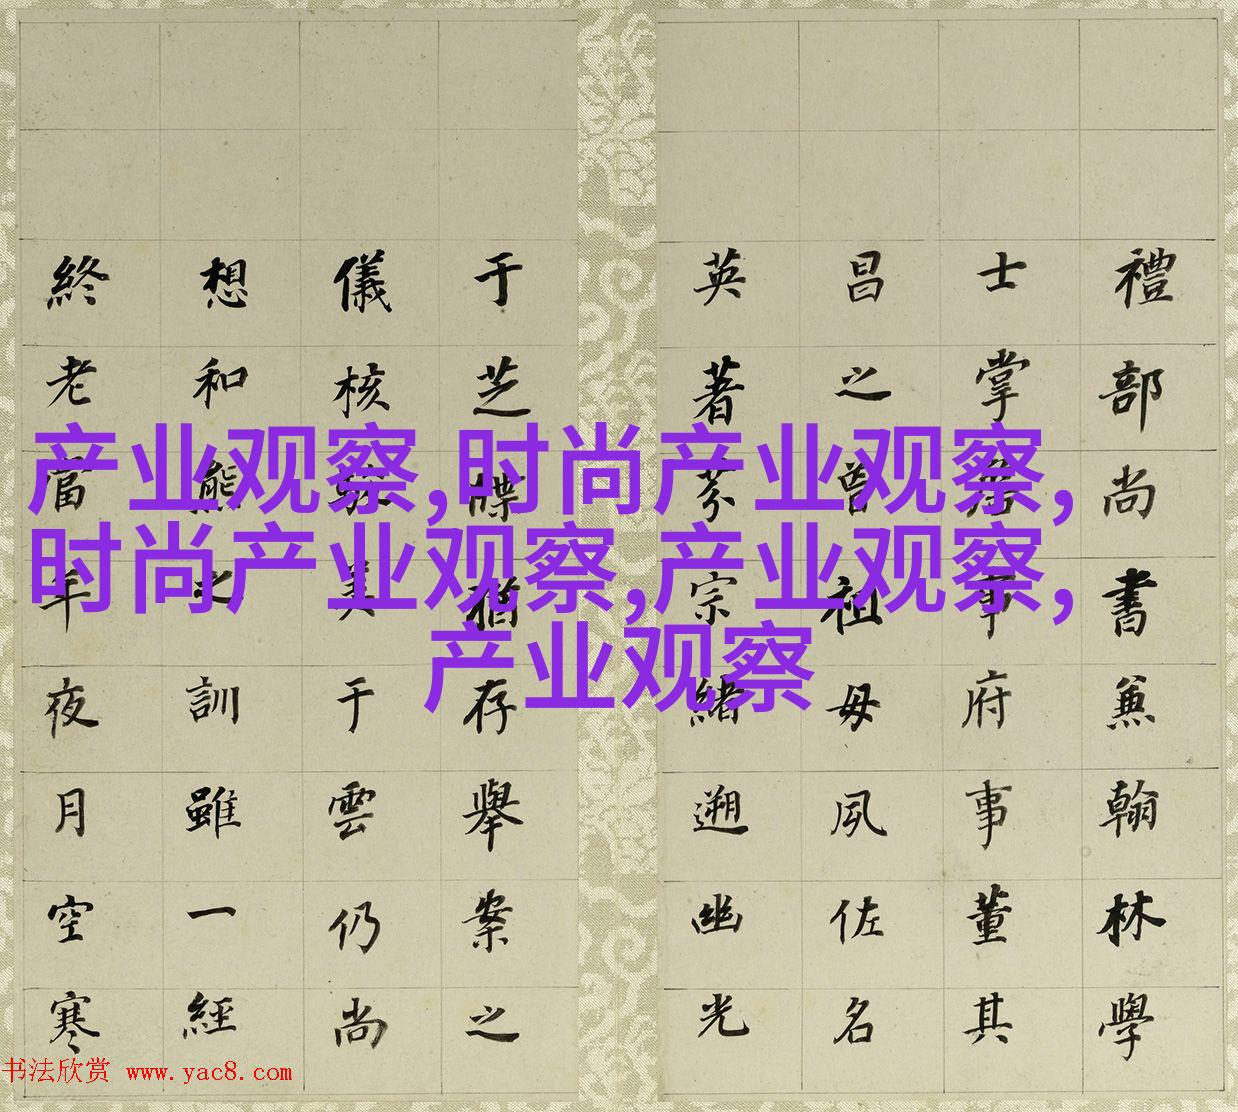 禮部尚書兼翰林學
士掌詹事府事董其
昌之曾祖母夙佐名
英著芬宗緒遡幽光
于芝牒猶存舉案之
儀核美于雲仍尚
想和熊之訓雖一經
終老當年夜月空寒
产业观察,时尚产业观察,
时尚产业观察,产业观察,
产业观察
书法欣赏 www.yac8.com